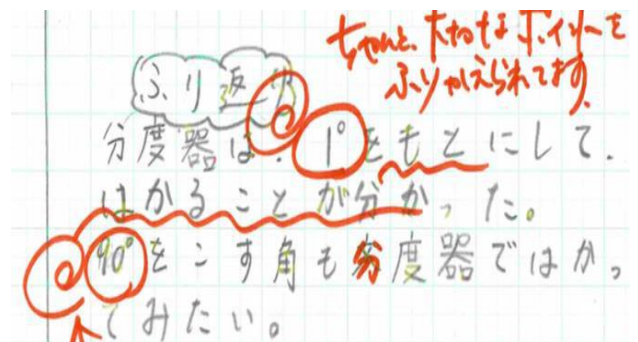 ちゃんと、大切なポイントを
ふりかえられてます。
ふり返り
分度器は、1°をもとにして、
はかることが分かった。
90°をこす角も分度器ではかっ
てみたい。